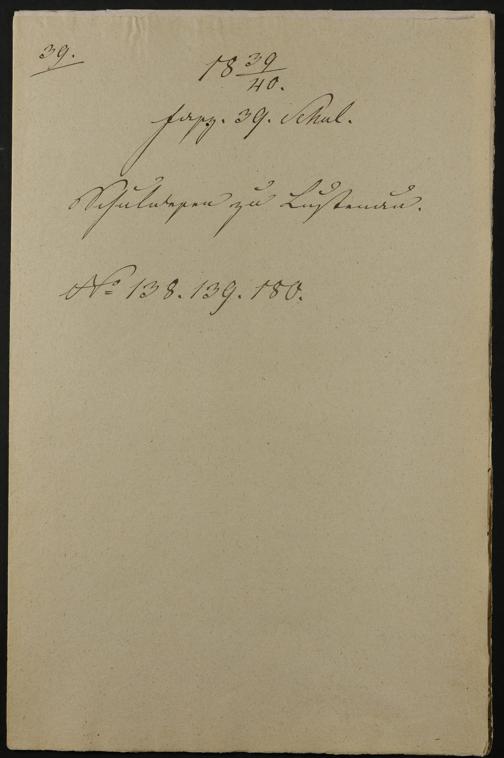 39.
18 39/40.
Fasz. 39. Schul.
Schulwesen zu Lustenau.
No 138. 139. 180.